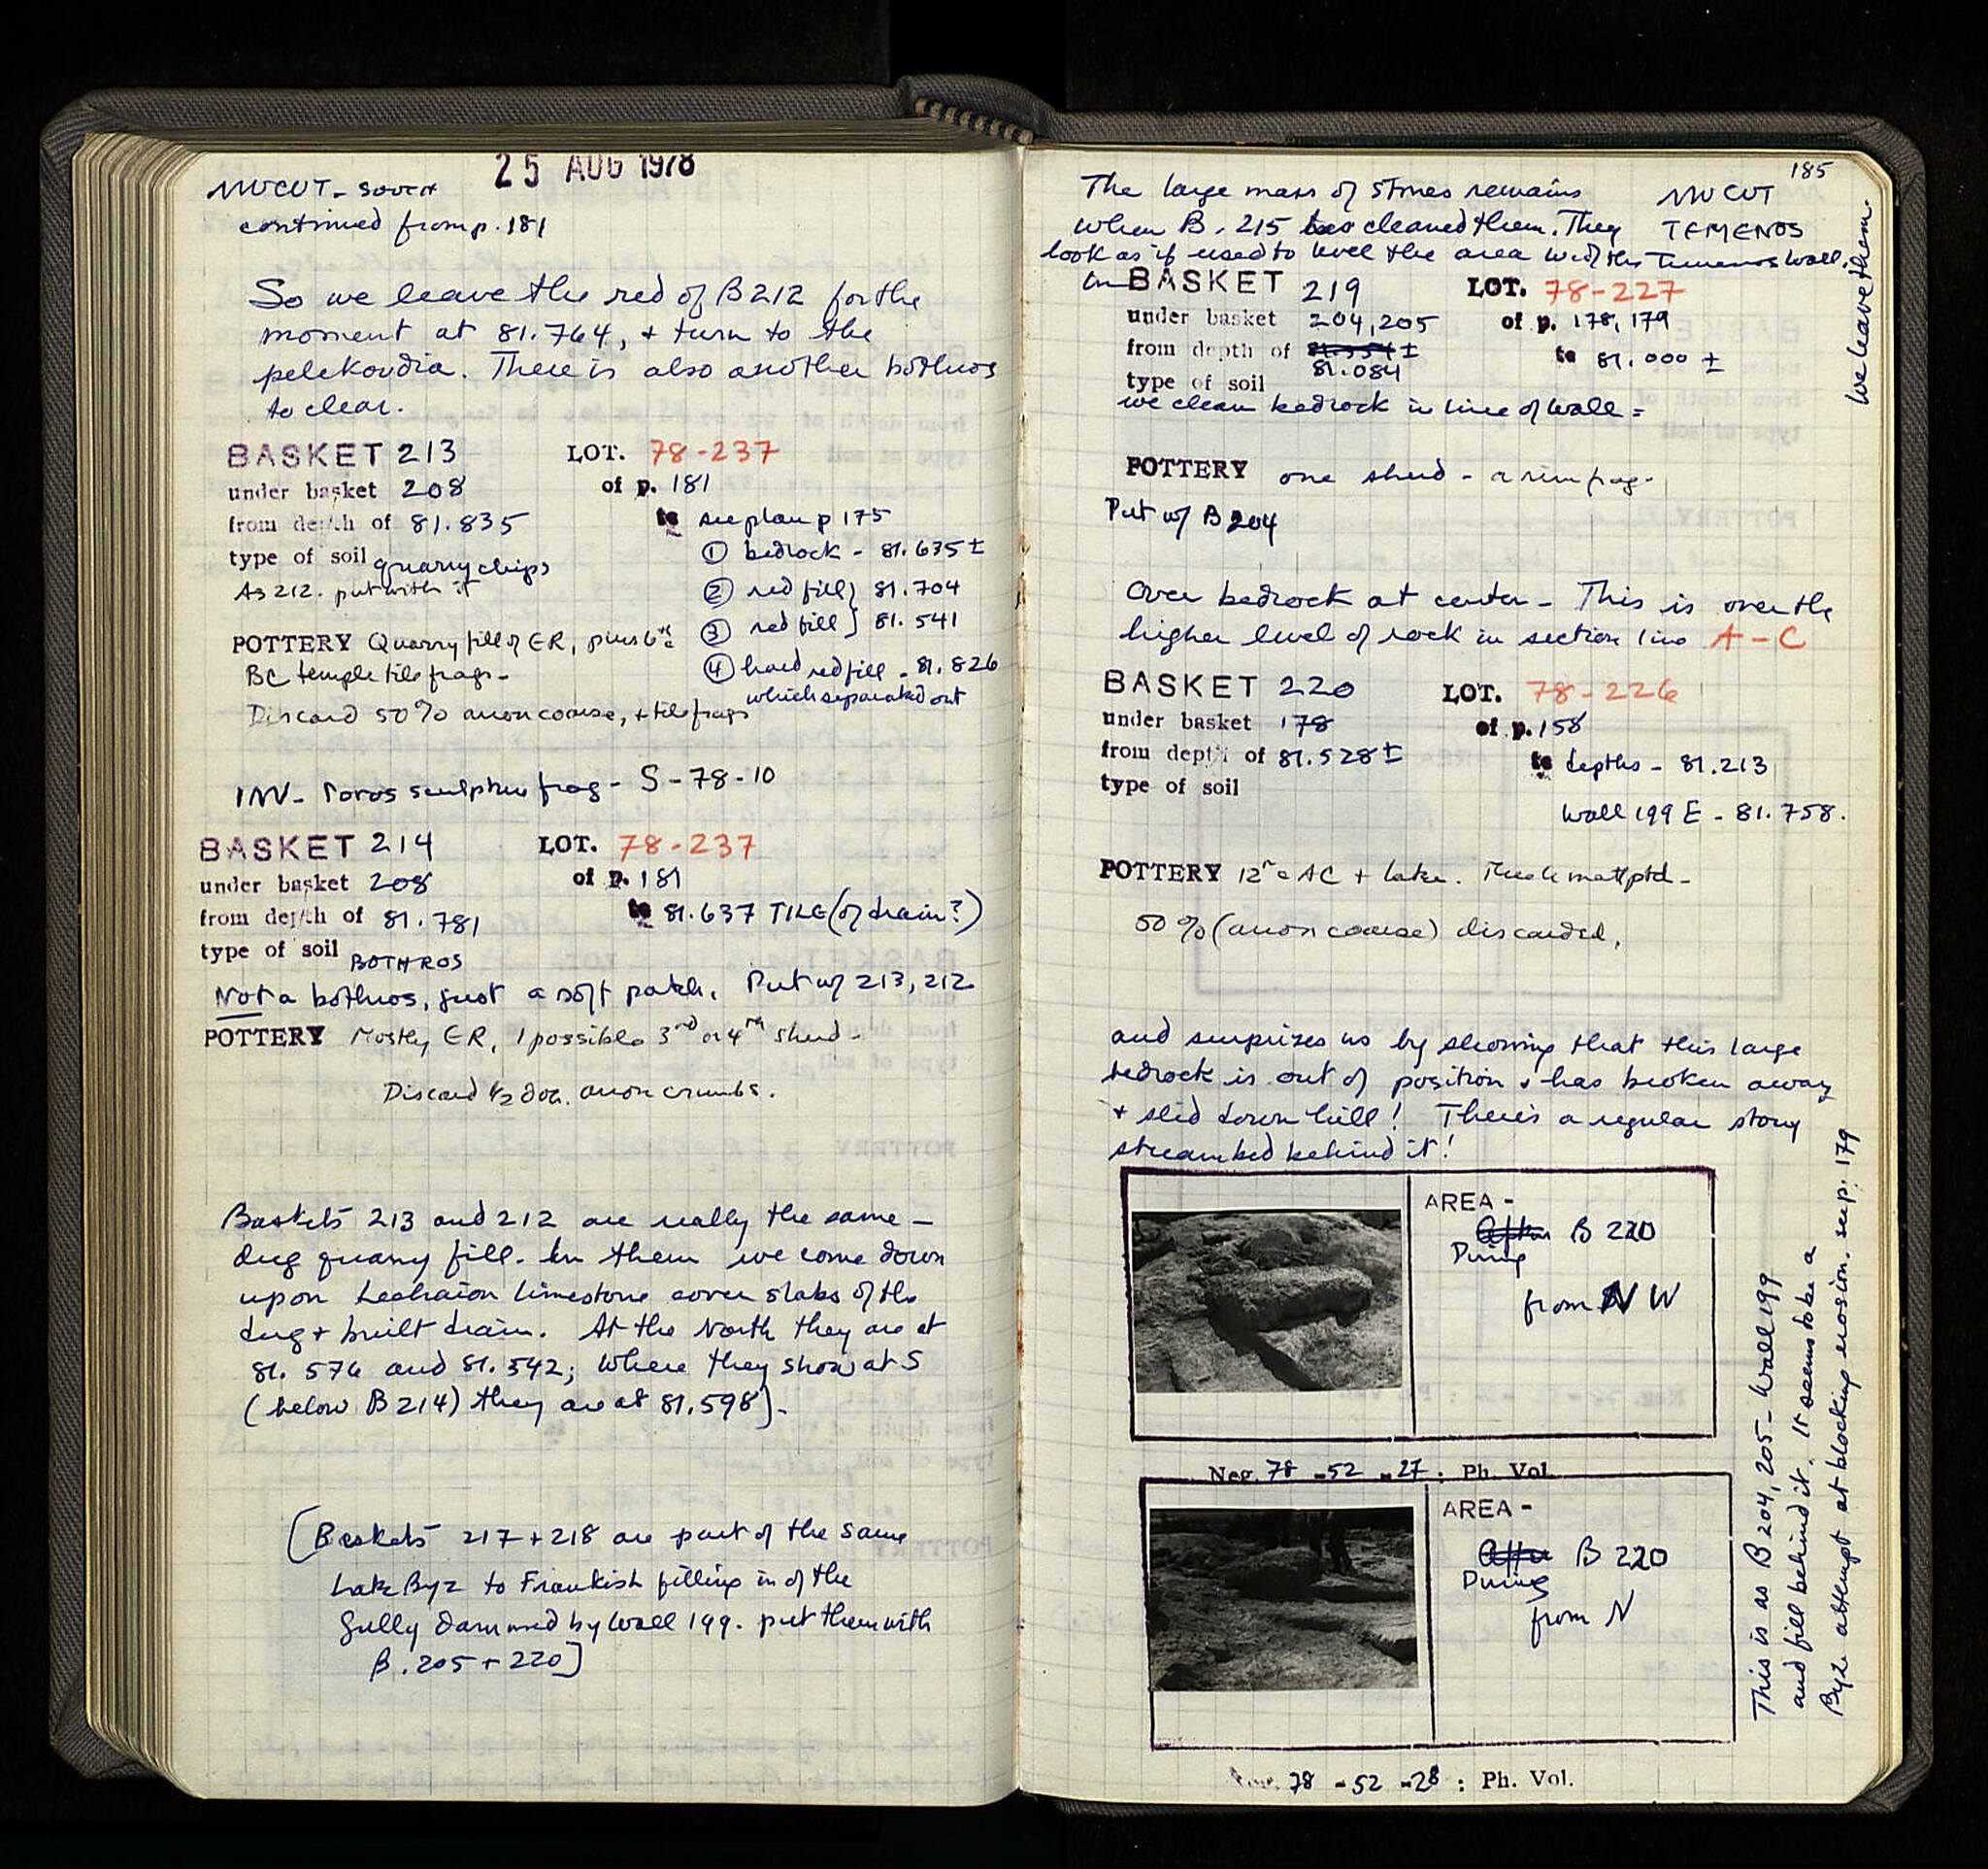 25 AUG 1978
NUCUT - SOUTH
continued from p. 181
So we leave the red of B 212 for the
moment at 81.764, + turn to the
pelekoudia. There is also another bothros
to clear.
BASKET 213 LOT. 78-237
under basket 208 of p. 181
from depth of 81.835 to see plan p 175
type of soil quarry chips
As 212. put with it
① bedrock - 81.635 ±
② red fill } 81.704
③ red fill } 81.541
④ hard red fill - 81.826
which separated out
POTTERY Quarry fill of ER, plus 6th c
BC temple tile frags -
Discard 50% anon coarse, + tile frags
INV - Poros sculpture frag - S-78-10
BASKET 214 LOT. 78-237
under basket 208 of p. 181
from depth of 81.781 to 81.637 TILE (of drain?)
type of soil BOTHROS
Not a bothros, just a soft patch. Put w/ 213, 212
POTTERY Mostly ER, 1 possible 3rd or 4th sherd -
Discard 1/2 doz. anon crumbs.
Baskets 213 and 212 are really the same -
dug quarry fill. In them we come down
upon Lechaion limestone cover slabs of the
dug + built drain. At the North they are at
81.576 and 81.542; where they show at S
(below B 214) they are at 81.598).
[Baskets 217 + 218 are part of the same
Late Byz to Frankish filling in of the
Gully dammed by Wall 199. put them with
B. 205 + 220]
185
NUCUT
TEMENOS
The large mass of stones remains
when B. 215 has cleaned them. They
look as if used to level the area w of the Temenos wall.
we leave them.
BASKET 219 LOT. 78-227
under basket 204, 205 of p. 178, 179
from depth of 81.084 ± to 81.000 ±
type of soil
we clean bedrock in line of wall =
POTTERY one sherd - a rim frag -
Put w/ B 204
Over bedrock at center - This is over the
higher level of rock in section line A - C
BASKET 220 LOT. 78-226
under basket 178 of p. 158
from depth of 81.528 ± to depths - 81.213
type of soil
Wall 199 E - 81.758.
POTTERY 12th c AC + later. much matt ptd -
50% (anon coarse) discarded.
and surprizes us by showing that this large
bedrock is out of position & has broken away
+ slid down hill! There's a regular stony
streambed behind it!
AREA -
After B 220
During
from NW
Neg. 78 - 52 - 27 : Ph. Vol.
AREA -
After B 220
During
from N
78 - 52 - 28 : Ph. Vol.
This is as B 204, 205 - Wall 199
and fill behind it. It seems to be a
Byz. attempt at blocking erosion. see p. 179